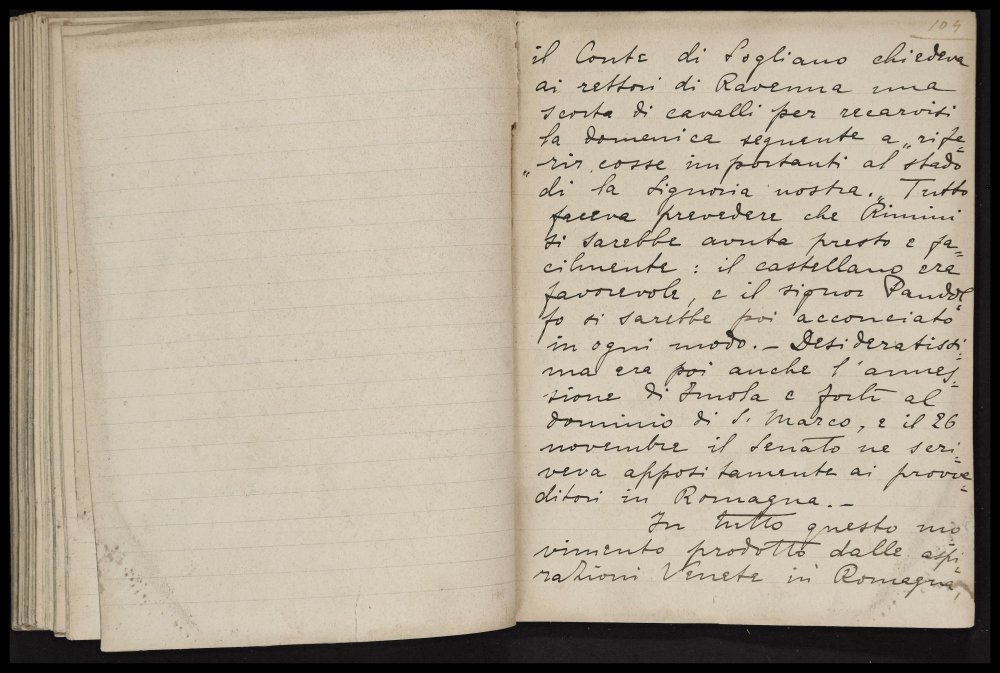 104
il Conte di Sogliano chiedeva
ai rettori di Ravenna una
scorta di cavalli per recarvisi
la domenica seguente a „rife=
„rir cosse importanti al stado
di la Signoria nostra.„ Tutto
faceva prevedere che Rimini
si sarebbe avuta presto e fa=
cilmente : il castellano era
favorevole, e il signor Pandol=
fo si sarebbe poi acconciato
in ogni modo. — Desideratissi=
ma era poi anche l'annes=
sione di Imola e Forlì al
dominio di S. Marco, e il 26
novembre il Senato ne scri=
veva appositamente ai provve=
ditori in Romagna. —
In tutto questo mo
vimento prodotto dalle aspi=
razioni Venete in Romagna,